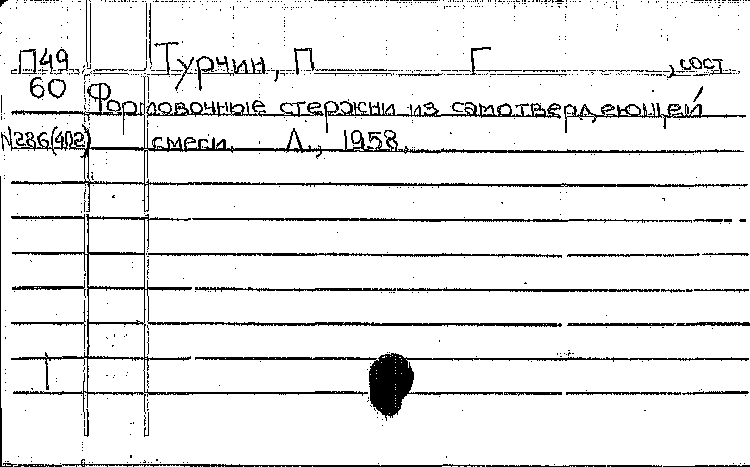 П49 Турчин, П Г , сост
60 Формовочные стержни из самотвердеющей
N286(402) смеси. Л., 1958.